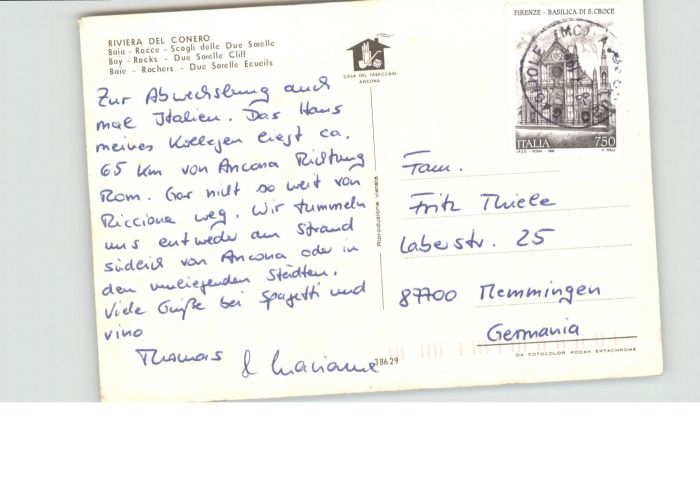 RIVIERA DEL CONERO
Baia - Rocce - Scogli delle Due Sorelle
Bay - Rocks - Due Sorelle Cliff
Baie - Rochers - Due Sorelle Ecueils
CASA DEL TABACCAIO
ANCONA
FIRENZE - BASILICA DI S. CROCE
ITALIA 750
Zur Abwechslung auch
mal Italien. Das Haus
meines Kollegen liegt ca.
65 Km von Ancona Richtung
Rom. Gar nicht so weit von
Riccione weg. Wir tummeln
uns entweder am Strand
südlich von Ancona oder in
den umliegenden Städten.
Viele Grüße bei Spagetti und
vino
Thomas & Mariame
Riproduzione vietata
Fam.
Fritz Thiele
Laberstr. 25
87700 Memmingen
Germania
38629
DA FOTOCOLOR KODAK EKTACHROME